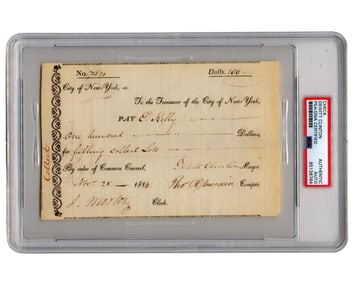 No.
Dolls. 100
City of New-York, ss.
To the Treasurer of the City of New-York,
PAY E. Kelly
One hundred Dollars,
for filling Collect Lots
By order of Common Council, Mayor
Nov. 28 1814 Compt.
J. Morton Clerk.
Collect
CHECK
DEWITT CLINTON
PSA/DNA CERTIFIED
AUTHENTIC
AUTO